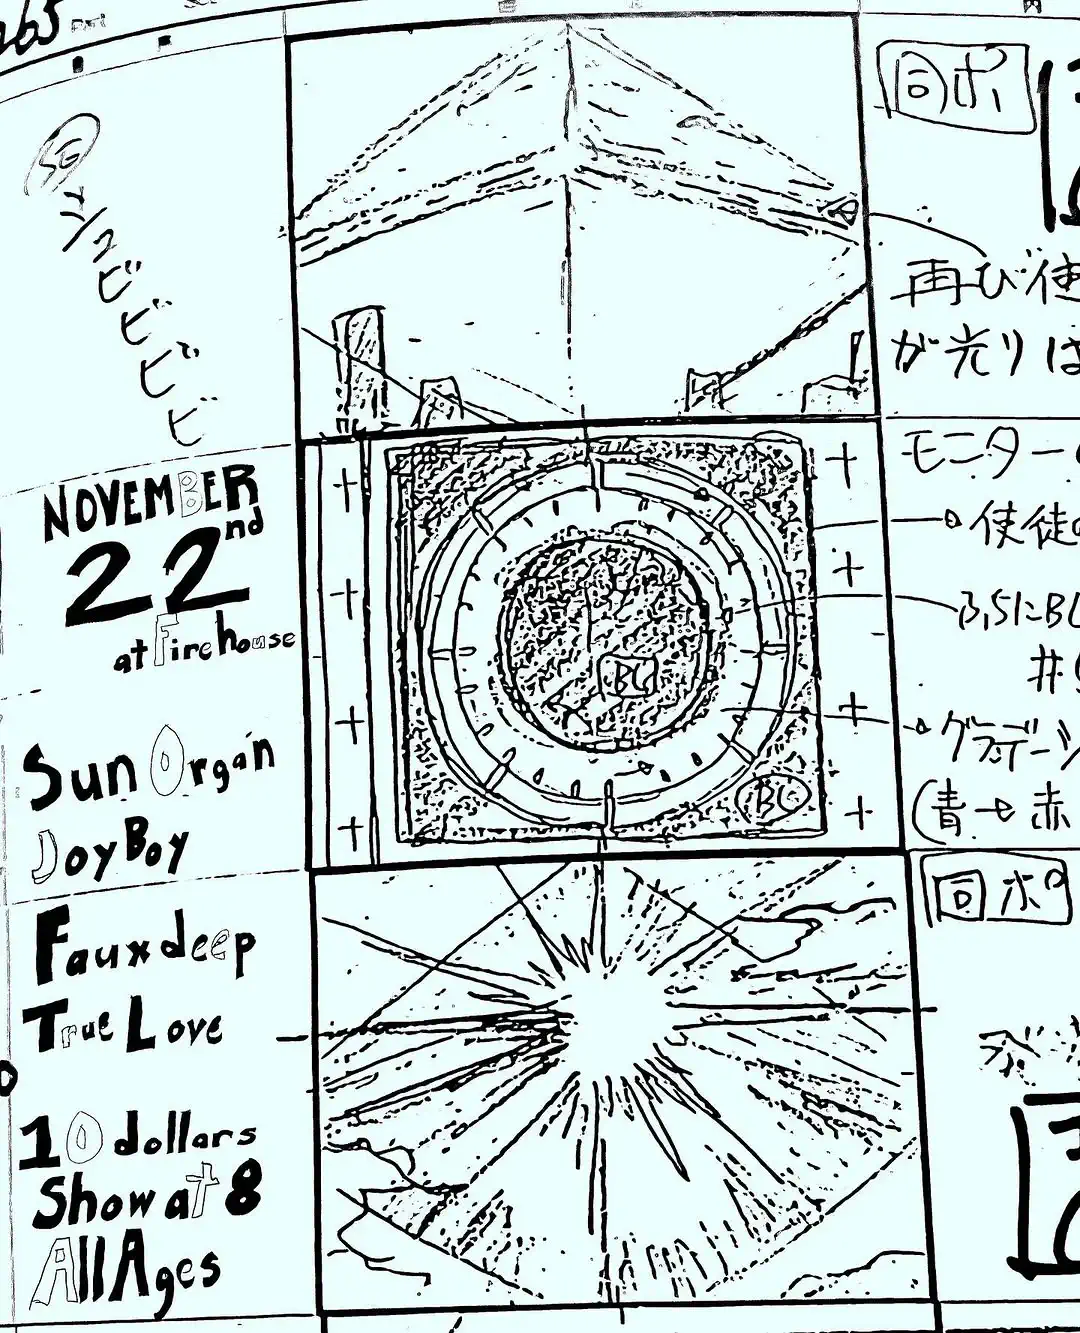 265
SG
ビビビビ
NOVEMBER
22nd
at Firehouse
Sun Organ
Joy Boy
Faux deep
True Love
10 dollars
Show at 8
All Ages
BG
同ポ
再び使
が光りは
モニター
使徒
BL
グラデーシ
(青→赤
同ポ